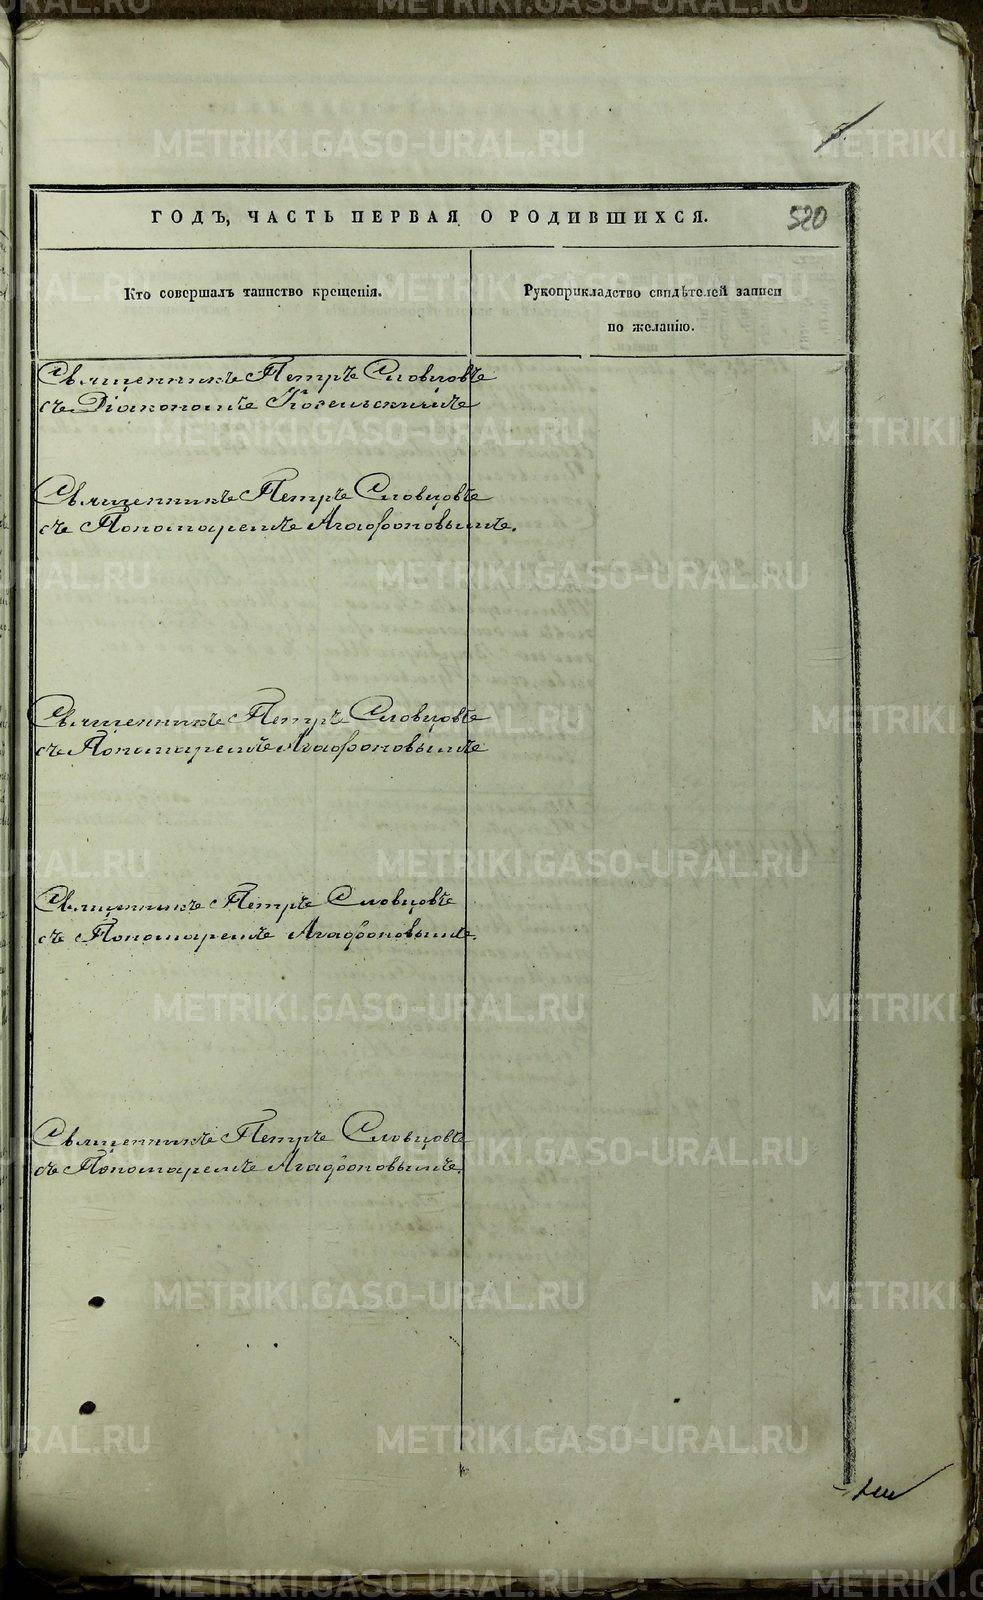 5.
ГОДЪ, ЧАСТЬ ПЕРВАЯ О РОДИВШИХСЯ.
520
Кто совершалъ таинство крещенія.
Рукоприкладство свидѣтелей записи
по желанію.
Священникъ Петръ Словцовъ
съ Діакономъ
Священникъ Петръ Словцовъ
съ Пономаремъ Агафоновымъ.
Священникъ Петръ Словцовъ
съ Пономаремъ Агафоновымъ
Священникъ Петръ Словцовъ
съ Пономаремъ Агафоновымъ.
Священникъ Петръ Словцовъ
съ Пономаремъ Агафоновымъ.
METRIKI.GASO-URAL.RU